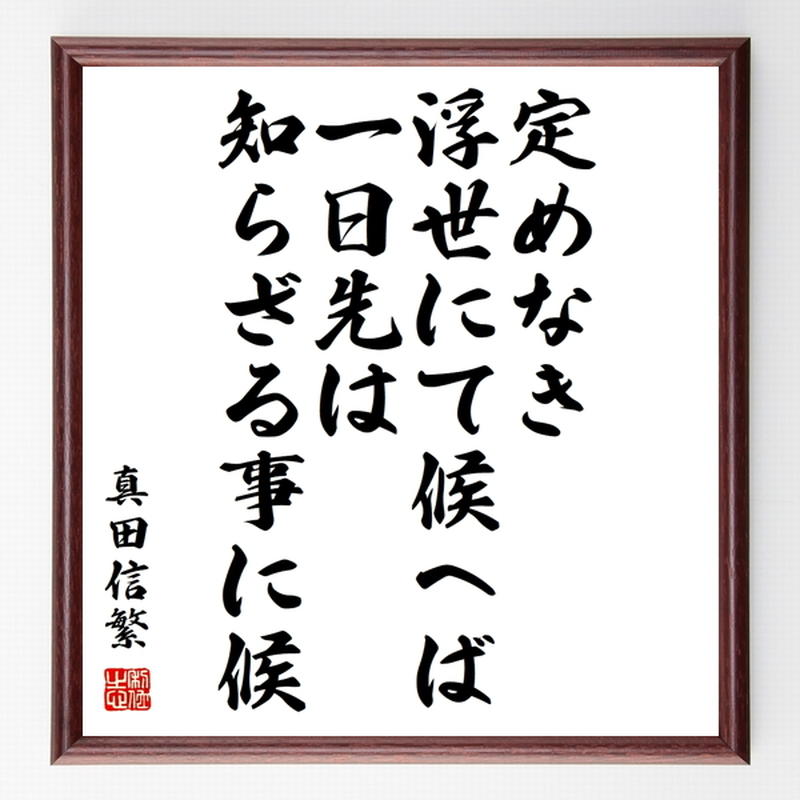 定めなき
浮世にて候へば
一日先は
知らざる事に候
真田信繁